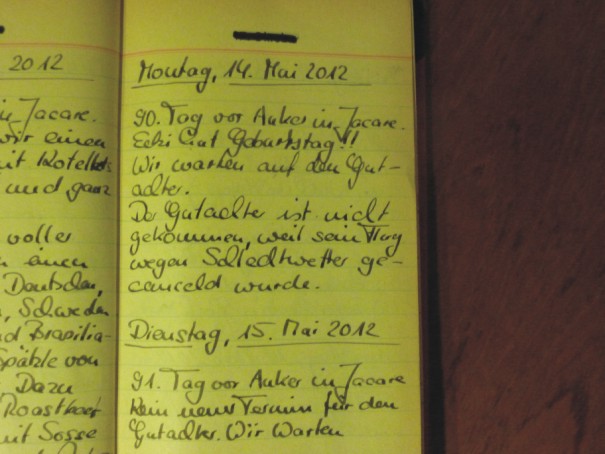 2012
in Jacare.
wir einen
mit Koteletts
und ganz
voller
einen
Deutschen,
Schweden
und Brasilia-
Spätzle von
Dazu
Roastbeef
mit Sosse
Montag, 14. Mai 2012
90. Tag vor Anker in Jacare.
Ecki Hat Geburtstag!!
Wir warten auf den Gut-
achter.
Der Gutachter ist nicht
gekommen, weil sein Flug
wegen Schlechtwetter ge-
canceld wurde.
Dienstag, 15. Mai 2012
91. Tag vor Anker in Jacare
Kein neuer Termin für den
Gutachter. Wir Warten